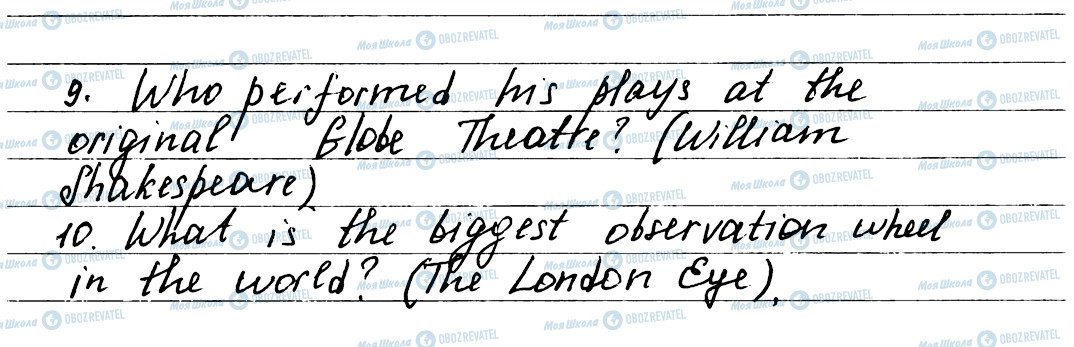 9. Who performed his plays at the
original Globe Theatre? (William
Shakespeare)
10. What is the biggest observation wheel
in the world? (The London Eye).
МояШкола OBOZREVATEL